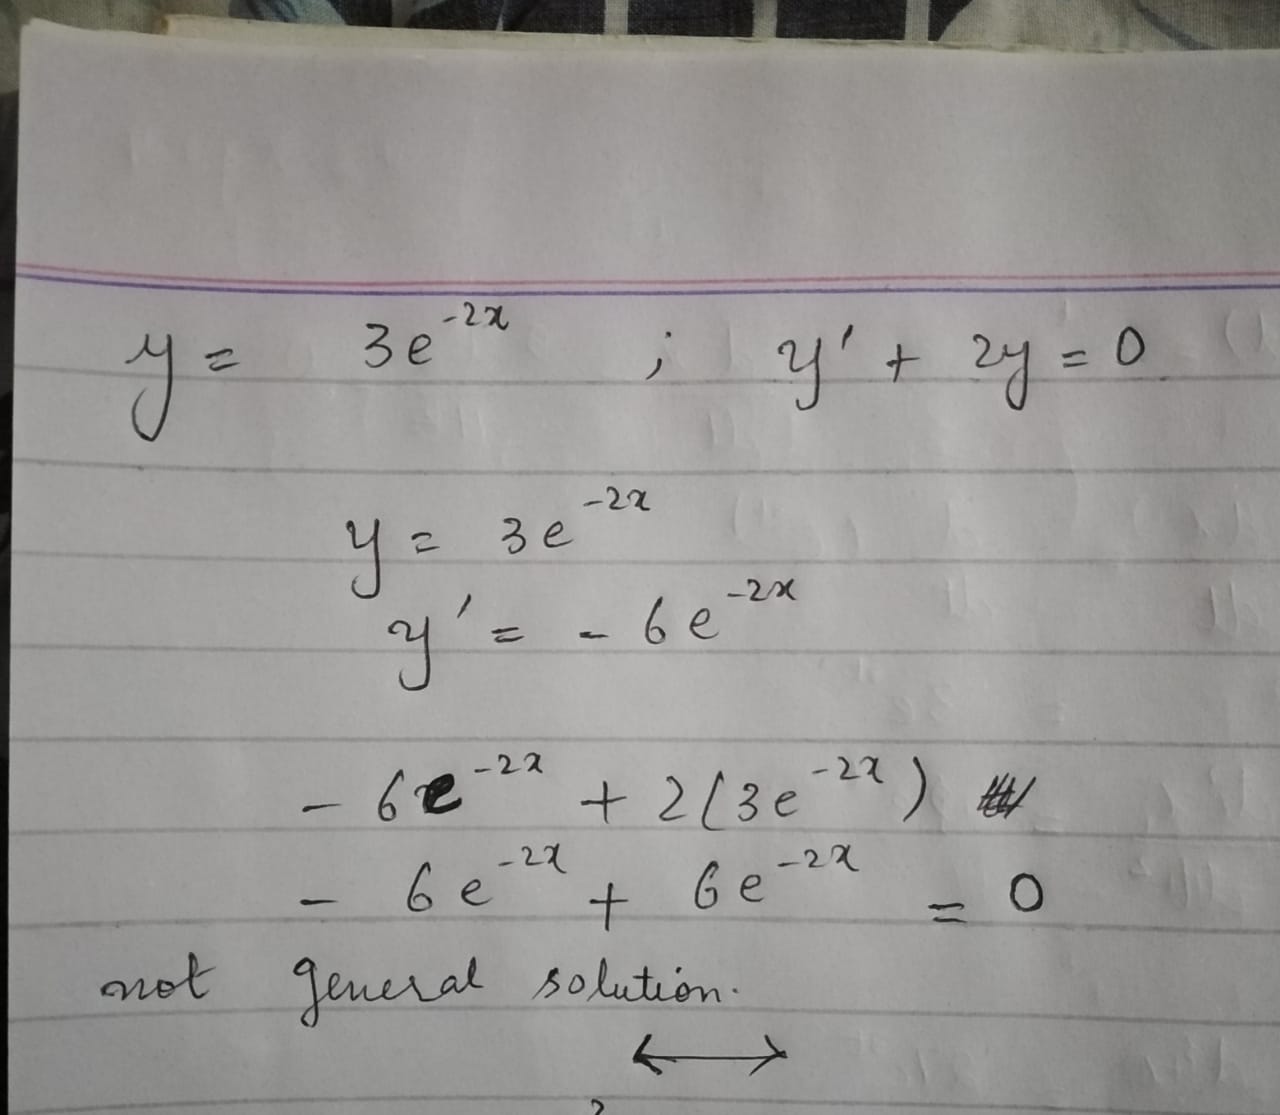 y = 3e⁻²ˣ ; y' + 2y = 0
y = 3e⁻²ˣ
y' = - 6e⁻²ˣ
- 6e⁻²ˣ + 2(3e⁻²ˣ)
- 6e⁻²ˣ + 6e⁻²ˣ = 0
not general solution.